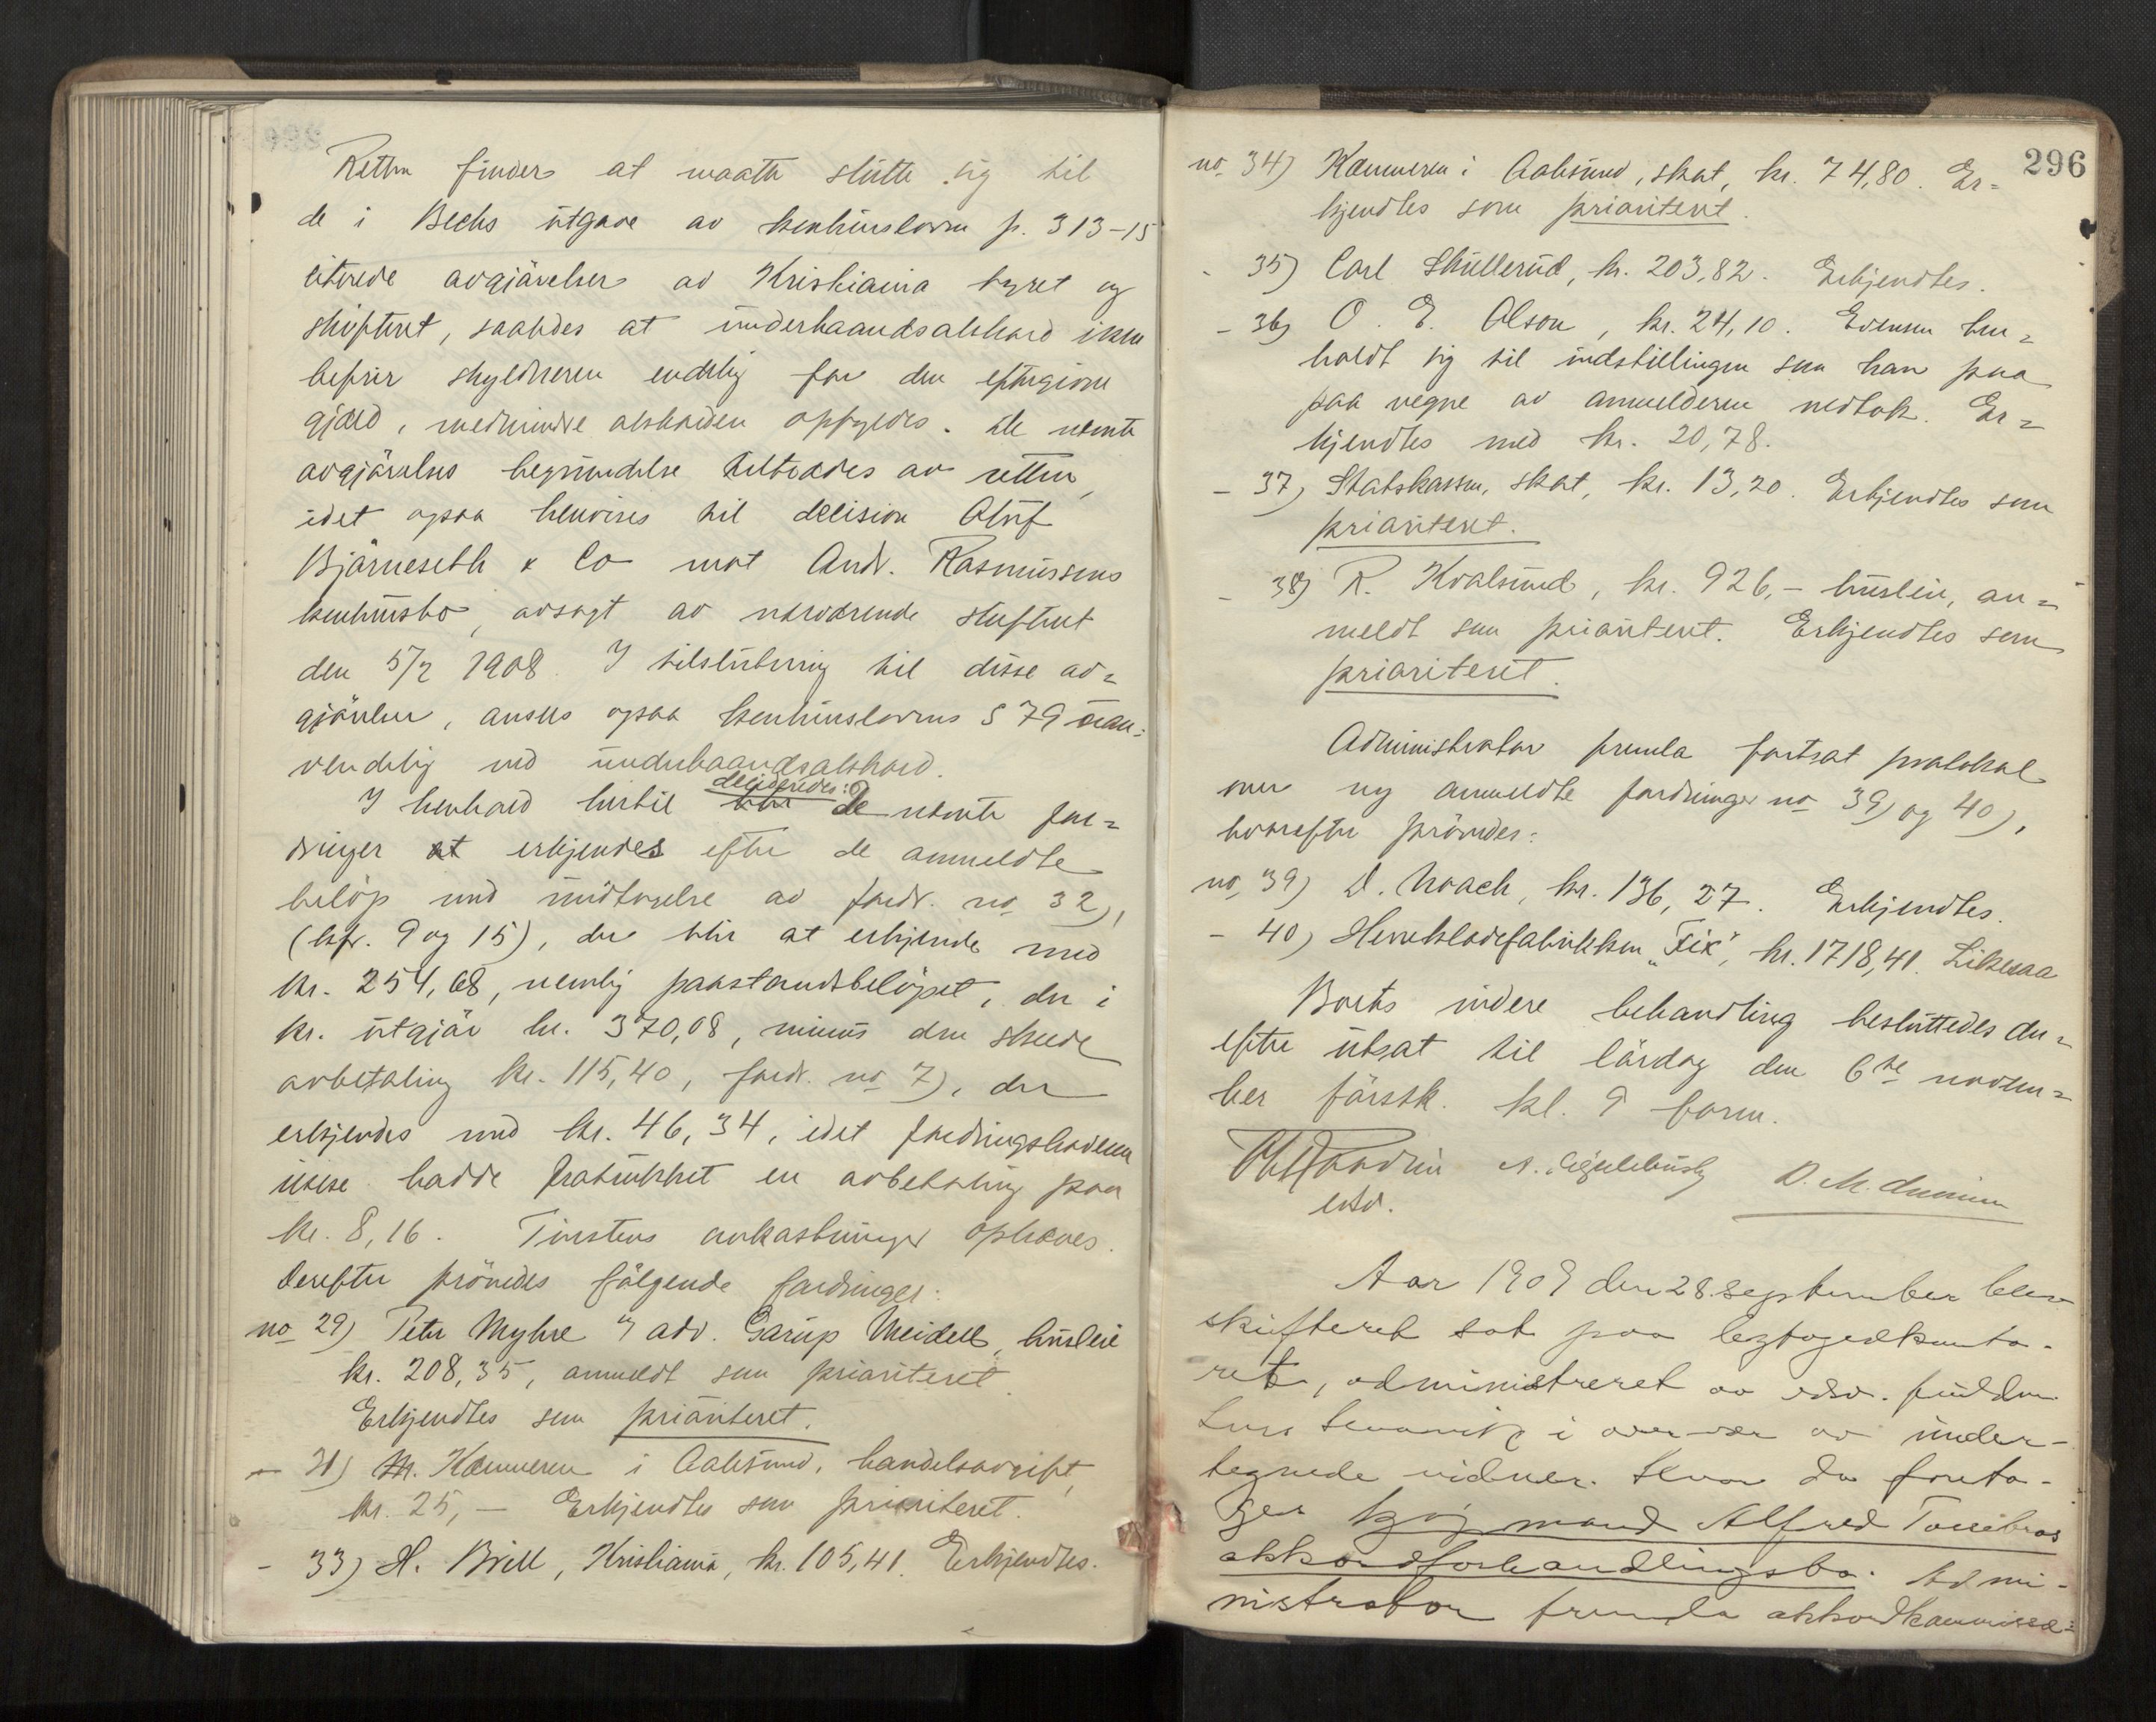 Retten finder at maatte støtte sig til
de i Bechs utgave av konkursloven p. 313-15
citerede avgjørelser av Kristiania byret og
skifteret, saaledes at underhaandsakkord ikke
befrir skyldneren endelig for den eftergivne
gjæld, medmindre akkorden opfyldes. De nævnte
avgjørelsers begrundelse tiltrædes av retten,
idet ogsaa henvises til decision Oluf
Bjørneseth & Co mot Andr. Rasmussens
konkursbo, avsagt av nærværende skifteret
den 5/2 1908. I tilslutning til disse av=
gjørelser, ansees ogsaa konkurslovens § 79 uan=
vendelig ved underhaandsakkord.
I henhold hertil decideredes: De nævnte for=
dringer erkjendes efter de anmeldte
beløp med undtagelse av fordr. no 32),
(kfr. 9 og 15), der blir at erkjende med
kr. 254,68, nemlig paastandsbeløpet, der i
kr. utgjør kr. 370,08, minus den skede
avbetaling kr. 115,40, fordr. no 7), der
erkjendes med kr. 46,34, idet fordringshaveren
ikke hadde fratrukket en avbetaling paa
kr. 8,16. Tvistens omkostninger ophæves.
Derefter prøvedes følgende fordringer:
no 29) Peter Myhre v/ adv. Garup Meidell, husleie
kr. 208,35, anmeldt som prioriteret.
Erkjendtes som prioriteret.
- 31) Kæmneren i Aalesund, handelsavgift,
kr. 25,- Erkjendtes som prioriteret.
- 33) H. Brill, Kristiania, kr. 105,41. Erkjendtes.
296
no 34) Kæmneren i Aalesund, skat, kr. 74,80. Er=
kjendtes som prioriteret.
- 35) Carl Skullerud, kr. 203,82. Erkjendtes.
- 36) O. E. Olson, kr. 24,10. Evensen hen=
holdt sig til indstillingen som han paa
paa vegne av anmelderen vedtok. Er=
kjendtes med kr. 20,78.
- 37) Statskassen, skat, kr. 13,20. Erkjendtes som
prioriteret.
- 38) R. Kvalsund, kr. 926,- husleie, an=
meldt som prioriteret. Erkjendtes som
prioriteret.
Administrator fremla fortsat protokol
over ny anmeldte fordringer no 39) og 40),
hvorefter prøvedes:
no 39) D. Noach, kr. 136,27. Erkjendtes.
- 40) Hermetikfabrikken "Fix", kr. 1718,41. Likesaa
Boets videre behandling besluttedes der=
efter utsat til lørdag den 6te novem=
ber førstk. kl. 9 form.
Aar 1909 den 28. september blev
skifteret sat paa byfogedkonto-
ret, administreret av edsv. fuldm.
i overvær av under-
tegnede vidner. Hvor da foreto-
ges kjøpmand Alfred
akkordforhandlingsbo. Admi-
nistrator fremla akkordkommissæ-